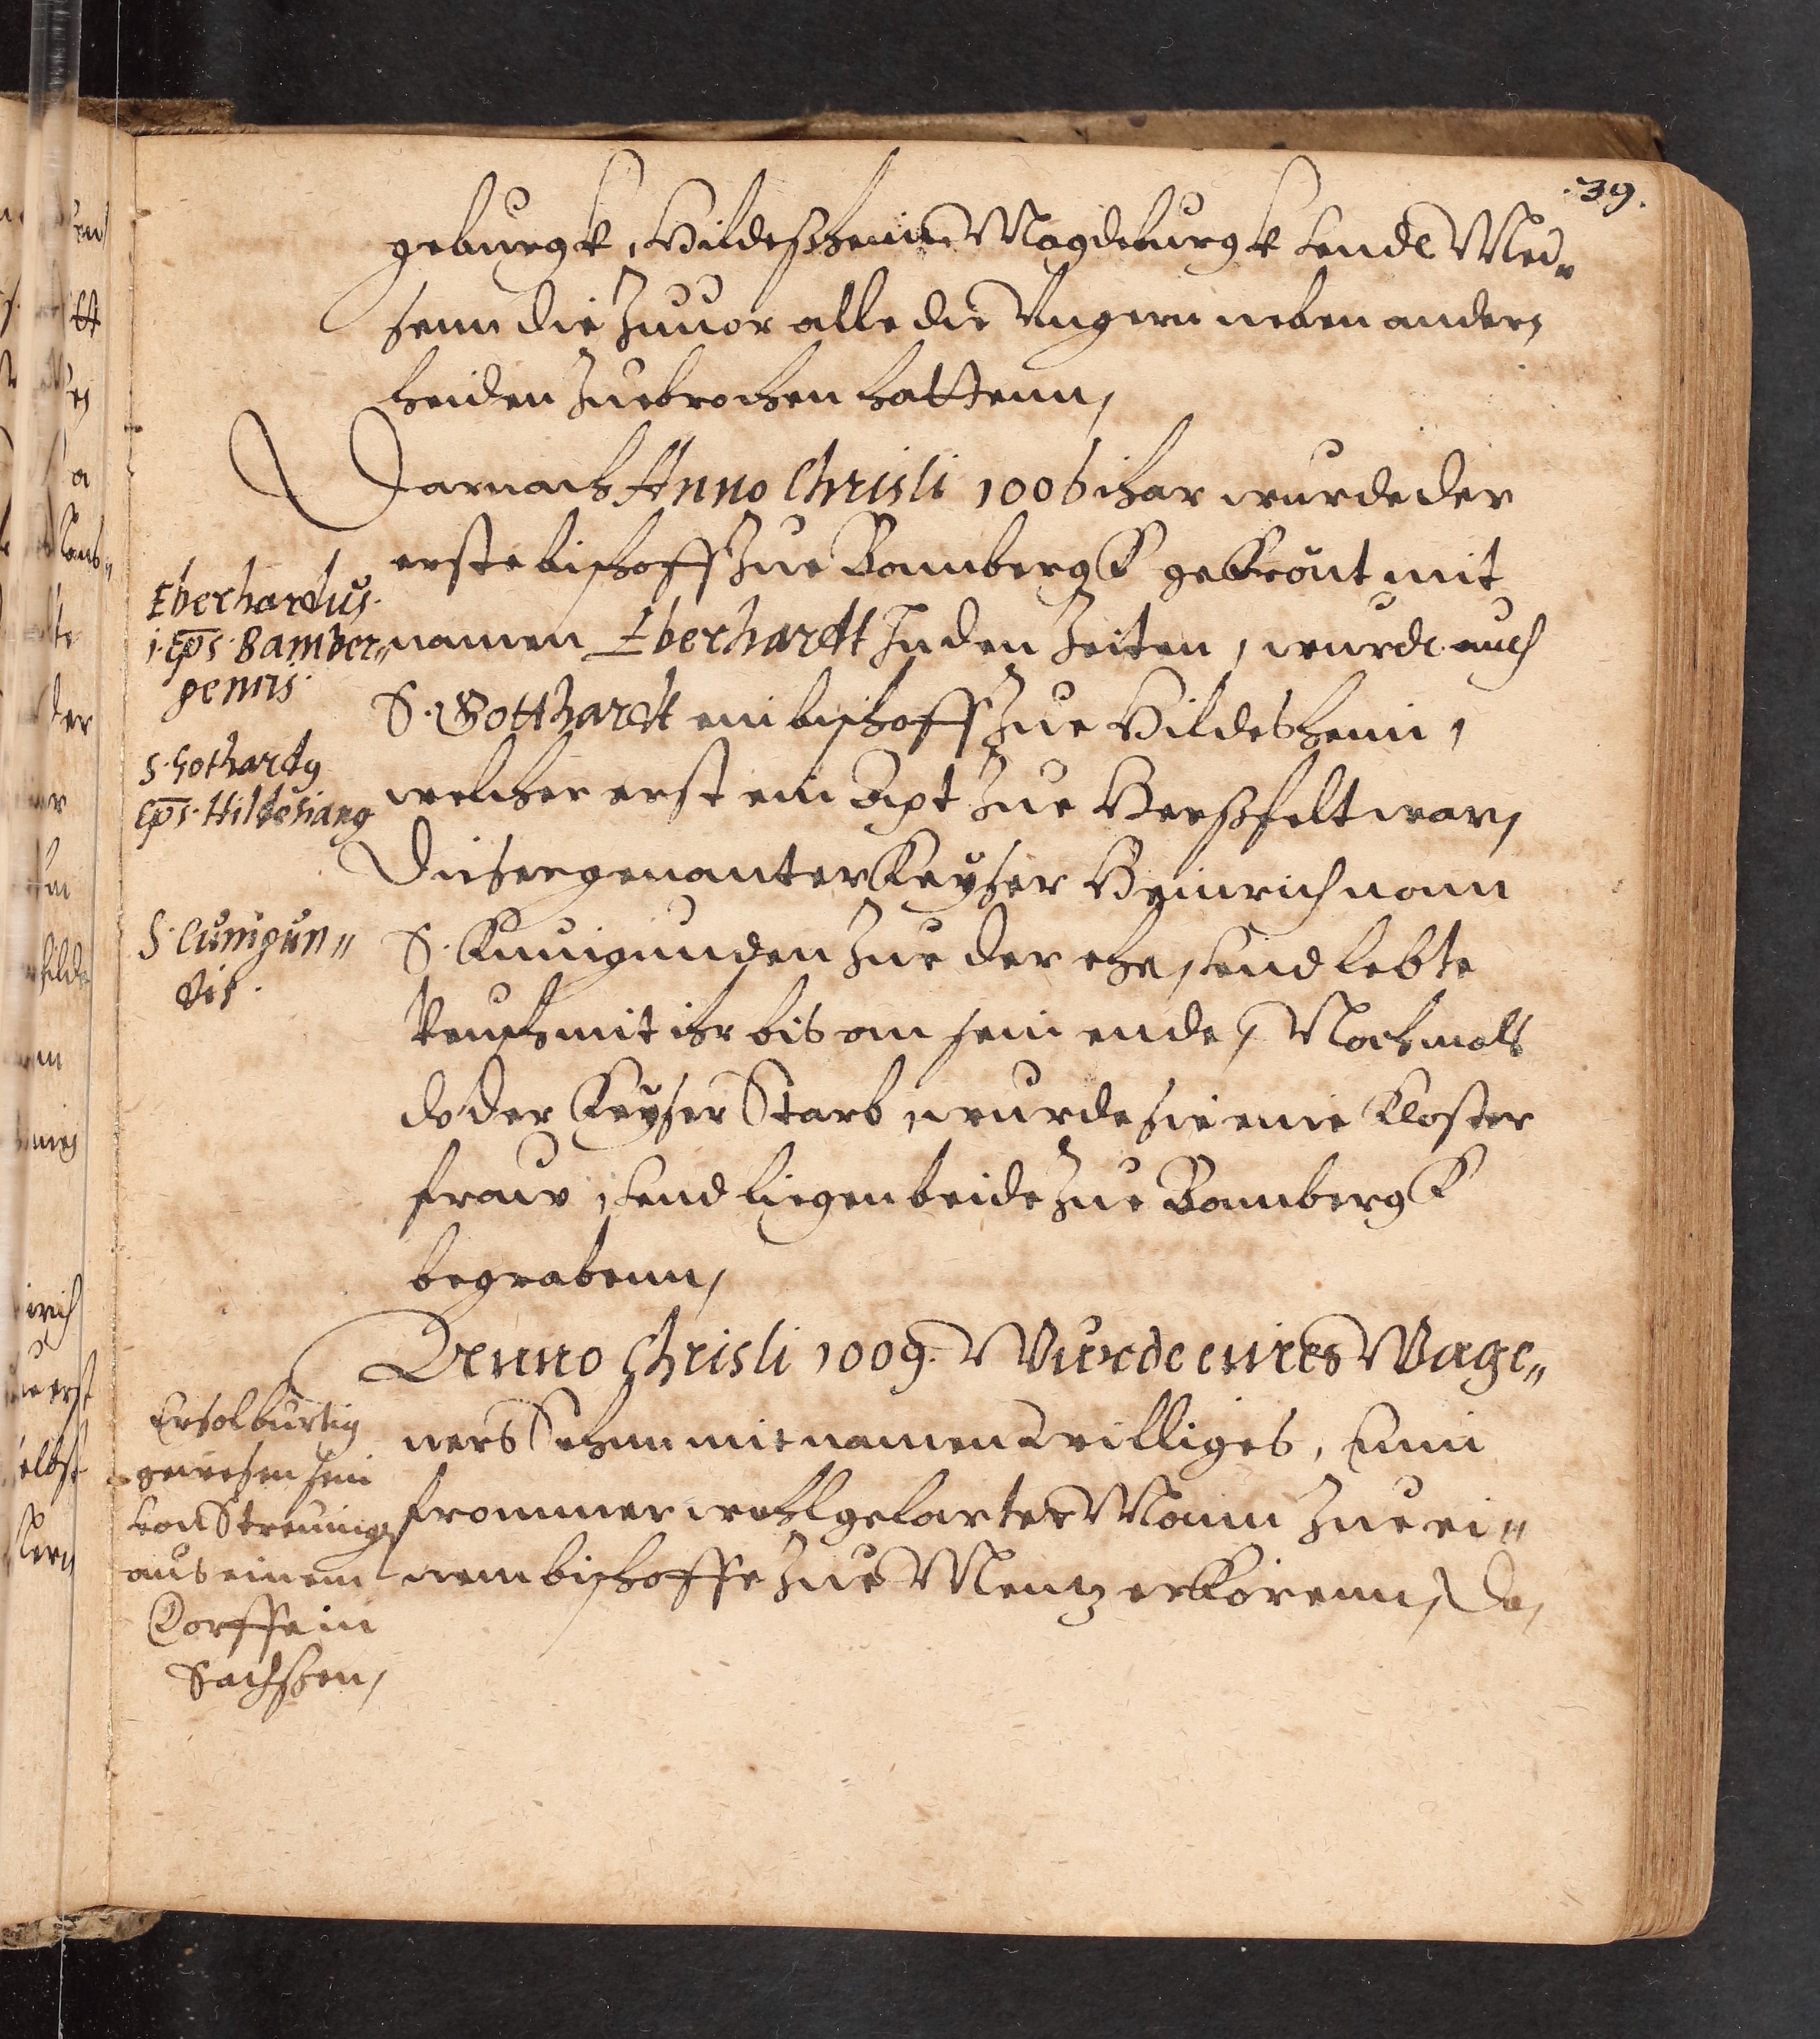 39.
geburgk, Hildeßheim Magdeburgk vnde Mei„
senn die Zuuor alle die Vngern neben andern
heiden Zuebrochen hattenn,
Darnach Anno Christi 1006 ihar wurde der
erste bischoff Zue Bambergk gekrönt mit
namen Eberhardt In den Zeiten, wurde auch
S. Gotthardt ein bischoff Zue Hildesheim,
welcher erst ein Apt Zue Herßfelt war,
Dieser genanter Keyser Heinrich nam
S. Kunigunden Zue der ehe, vnd lebte
keusch mit ihr bis an sein ende, Nochmals
do der Keyser Starb, wurde sie eine Kloster
fraw, vnd liegen beide Zue Bambergk
begrabenn,
Anno Christi 1009. Wurde eines Wage„
ners Sohnn mit namen Willigeß, Einn
frommer wohlgelarter Mann Zue ei„
nem bischoffe Zue Mentz erkorenn, De,
Eberhardus.
1. Eps. Bamber„
gensis.
S. Gothardg
Eps. Hildesiang
S. Cunigun„
dis.
Er sol burtig
gewesen sein
von Streunig
aus einem
Dorffe in
Sachssen,